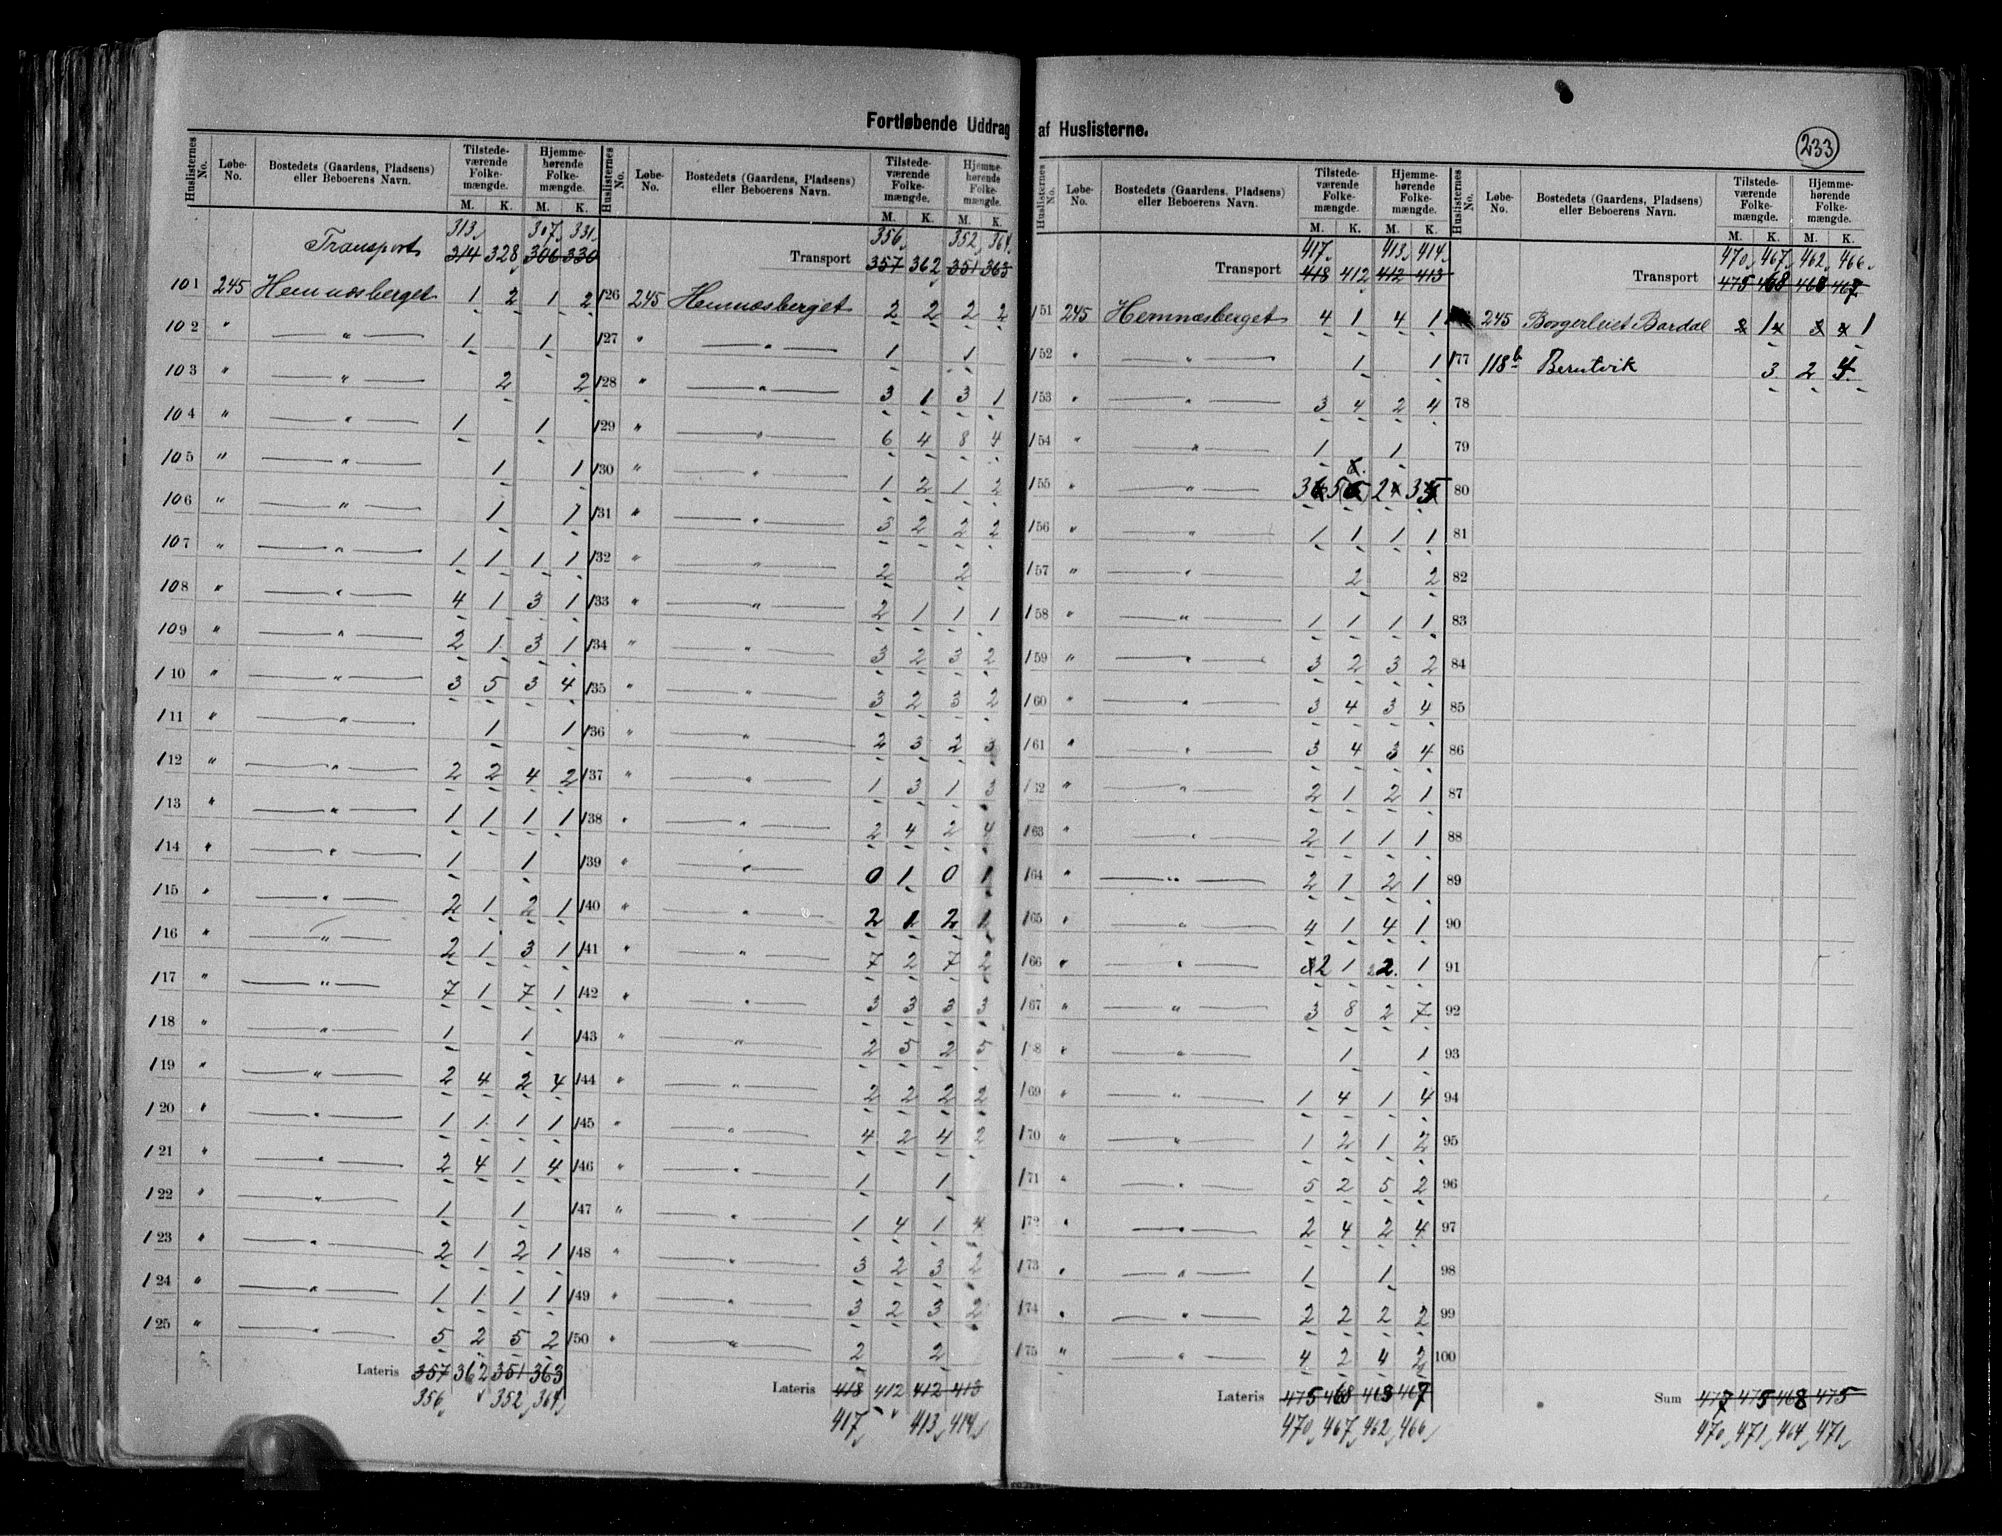 Fortløbende Uddrag af Huslisterne.
233
Huslisternes No. Løbe-No. Bostedets (Gaardens, Pladsens) eller Beboerens Navn. Tilstedeværende Folkemængde. M. K. Hjemmehørende Folkemængde. M. K.
313 307 331
Transport 314 328 306 330
101 245 Hemnæsberget 1 2 1 2
102 " " 1 1
103 " " 2 2
104 " " 1 1
105 " " 1 1
106 " " 1 1
107 " " 1 1 1 1
108 " " 4 1 3 1
109 " " 2 1 3 1
110 " " 3 5 3 4
111 " " 1 1
112 " " 2 2 4 2
113 " " 1 1 1 1
114 " " 1 1
115 " " 2 1 2 1
116 " " 2 1 3 1
117 " " 7 1 7 1
118 " " 1 1
119 " " 2 4 2 4
120 " " 1 1 1 1
121 " " 2 4 1 4
122 " " 1 1
123 " " 2 1 2 1
124 " " 1 1 1 1
125 " " 5 2 5 2
Lateris 357 362 351 363
356 352 364
Huslisternes No. Løbe-No. Bostedets (Gaardens, Pladsens) eller Beboerens Navn. Tilstedeværende Folkemængde. M. K. Hjemmehørende Folkemængde. M. K.
356 352 364
Transport 357 362 351 363
126 245 Hemnæsberget 2 2 2 2
127 " " 1 1
128 " " 3 1 3 1
129 " " 6 4 8 4
130 " " 1 2 1 2
131 " " 3 2 2 2
132 " " 2 2
133 " " 2 1 1 1
134 " " 3 2 3 2
135 " " 3 2 3 2
136 " " 2 3 2 3
137 " " 1 3 1 3
138 " " 2 4 2 4
139 " " 0 1 0 1
140 " " 2 1 2 1
141 " " 7 2 7 2
142 " " 3 3 3 3
143 " " 2 5 2 5
144 " " 2 2 2 2
145 " " 4 2 4 2
146 " " 1 1
147 " " 1 4 1 4
148 " " 3 2 3 2
149 " " 3 2 3 2
150 " " 2 2
Lateris 418 412 412 413
417 413 414
Huslisternes No. Løbe-No. Bostedets (Gaardens, Pladsens) eller Beboerens Navn. Tilstedeværende Folkemængde. M. K. Hjemmehørende Folkemængde. M. K.
417 413 414
Transport 418 412 412 413
151 245 Hemnæsberget 4 1 4 1
152 " " 1 1
153 " " 3 4 2 4
154 " " 1 1
155 " " 3 5 2 3
156 " " 1 1 1 1
157 " " 2 2
158 " " 1 1 1 1
159 " " 3 2 3 2
160 " " 3 4 3 4
161 " " 3 4 3 4
162 " " 2 1 2 1
163 " " 2 1 1 1
164 " " 2 1 2 1
165 " " 4 1 4 1
166 " " 2 1 2 1
167 " " 3 8 2 7
168 " " 1 1
169 " " 1 4 1 4
170 " " 1 2 1 2
171 " " 5 2 5 2
172 " " 2 4 2 4
173 " " 1 1
174 " " 2 2 2 2
175 " " 4 2 4 2
Lateris 475 468 463 467
470 467 462 466
Huslisternes No. Løbe-No. Bostedets (Gaardens, Pladsens) eller Beboerens Navn. Tilstedeværende Folkemængde. M. K. Hjemmehørende Folkemængde. M. K.
470 467 462 466
Transport 475 468 463 467
245 Borgerleiet Bardal 1 1
177 118b Berutvik 3 2 4
78
79
80
81
82
83
84
85
86
87
88
89
90
91
92
93
94
95
96
97
98
99
100
Sum 477 475 468 475
470 471 464 471